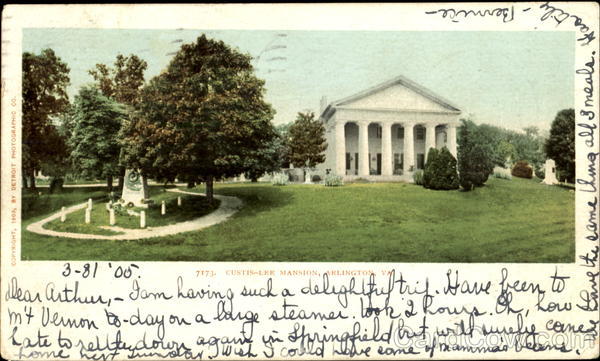 7173. CUSTIS-LEE MANSION, ARLINGTON, VA.
COPYRIGHT, 1903, BY DETROIT PHOTOGRAPHIC CO.
3-31 '05.
Dear Arthur,- I am having such a delightful trip. Have been to
Mt Vernon to-day on a large steamer. took 2 hours. Oh, how
hate to settle down again in Springfield but will surely come
home next Sunday. I wish I could have some persimmons again.
have the same thing all 3 meals.
Bernice-
CardCow.com